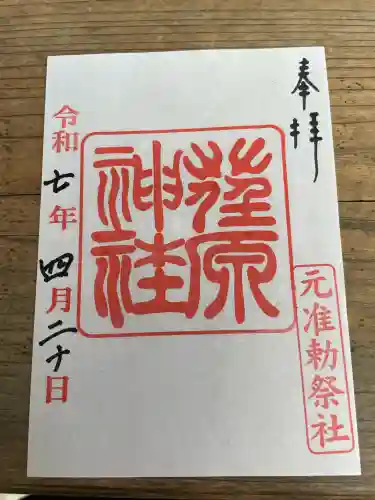 奉拝
元准勅祭社
荏原
神社
令和七年四月二十日